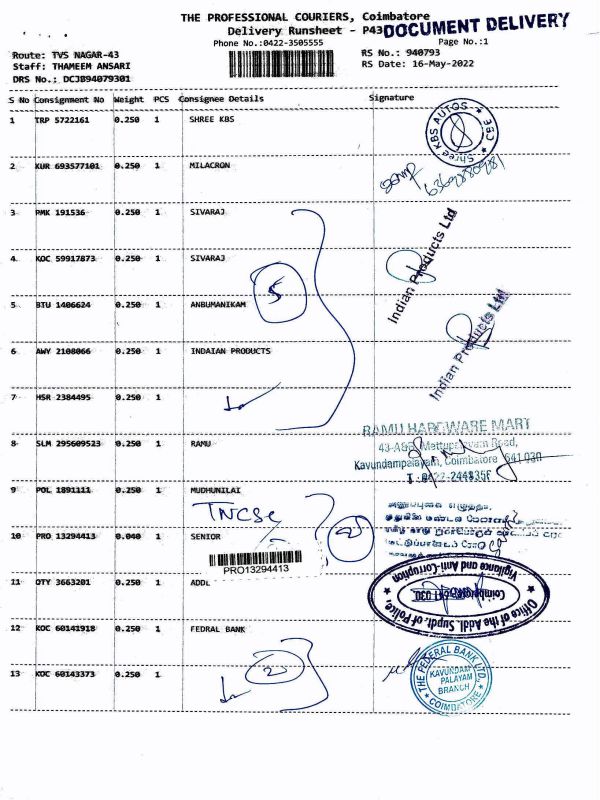 THE PROFESSIONAL COURIERS, Coimbatore
Delivery Runsheet - P43
DOCUMENT DELIVERY
Phone No.:0422-3505555
Page No.:1
Route: TVS NAGAR-43
RS No.: 940793
Staff: THAMEEM ANSARI
RS Date: 16-May-2022
DRS No.: DCJB94079301
S No Consignment No Weight PCS Consignee Details Signature
1 TRP 5722161 0.250 1 SHREE KBS
Shree KBS AUTOS CBE
2 KUR 693577101 0.250 1 MILACRON
3 PMK 191536 0.250 1 SIVARAJ
4 KOC 59917873 0.250 1 SIVARAJ
Indian Products Ltd
5
5 BTU 1406624 0.250 1 ANBUMANIKAM
6 AWY 2108066 0.250 1 INDAIAN PRODUCTS
Indian Products Ltd
7 HSR 2384495 0.250 1
RAMU HARDWARE MART
8 SLM 295609523 0.250 1 RAMU
Mettupalayam Road,
Kavundampalayam, Coimbatore 641 030
9 POL 1891111 0.250 1 MUDHUNILAI
TNCSC
10 PRO 13294413 0.040 1 SENIOR
2
PRO13294413
11 OTY 3663201 0.250 1 ADDL
Office of the Addl. Supdt. of Police,
Vigilance and Anti-Corruption
Coimbatore-641 030
12 KOC 60141918 0.250 1 FEDRAL BANK
2
13 KOC 60143373 0.250 1
THE FEDERAL BANK LTD.,
KAVUNDAM
PALAYAM
BRANCH
COIMBATORE